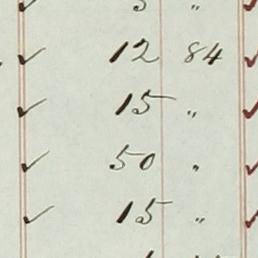 ✓ 5 "
✓ 12 84 ✓
✓ 15 " ✓
✓ 50 " ✓
✓ 15 " ✓